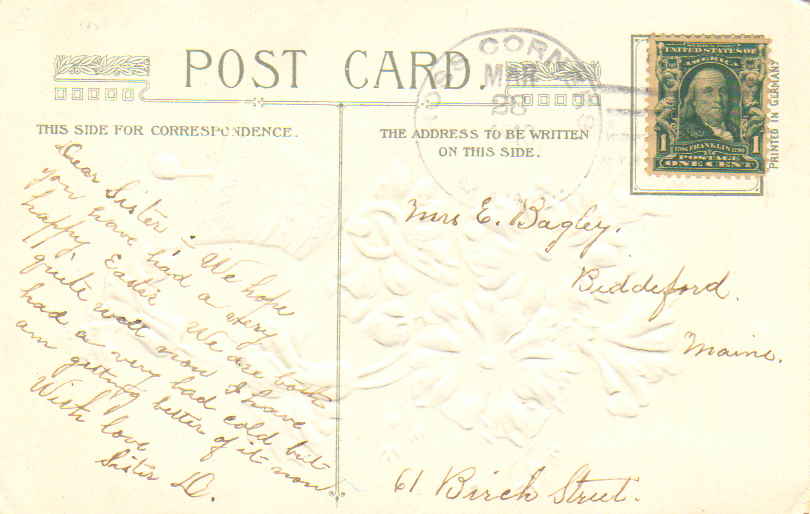 POST CARD.
THIS SIDE FOR CORRESPONDENCE.
THE ADDRESS TO BE WRITTEN
ON THIS SIDE.
CORN
MAR
28
UNITED STATES OF
AMERICA
1 FRANKLIN 1
POSTAGE
ONE CENT
PRINTED IN GERMANY
Dear Sister - We hope
you have had a very
happy Easter We are both
quite well now I have
had a very bad cold but
am getting better of it now
With love
Sister D.
Mrs E. Bagley.
Biddeford.
Maine.
61 Birch Street.